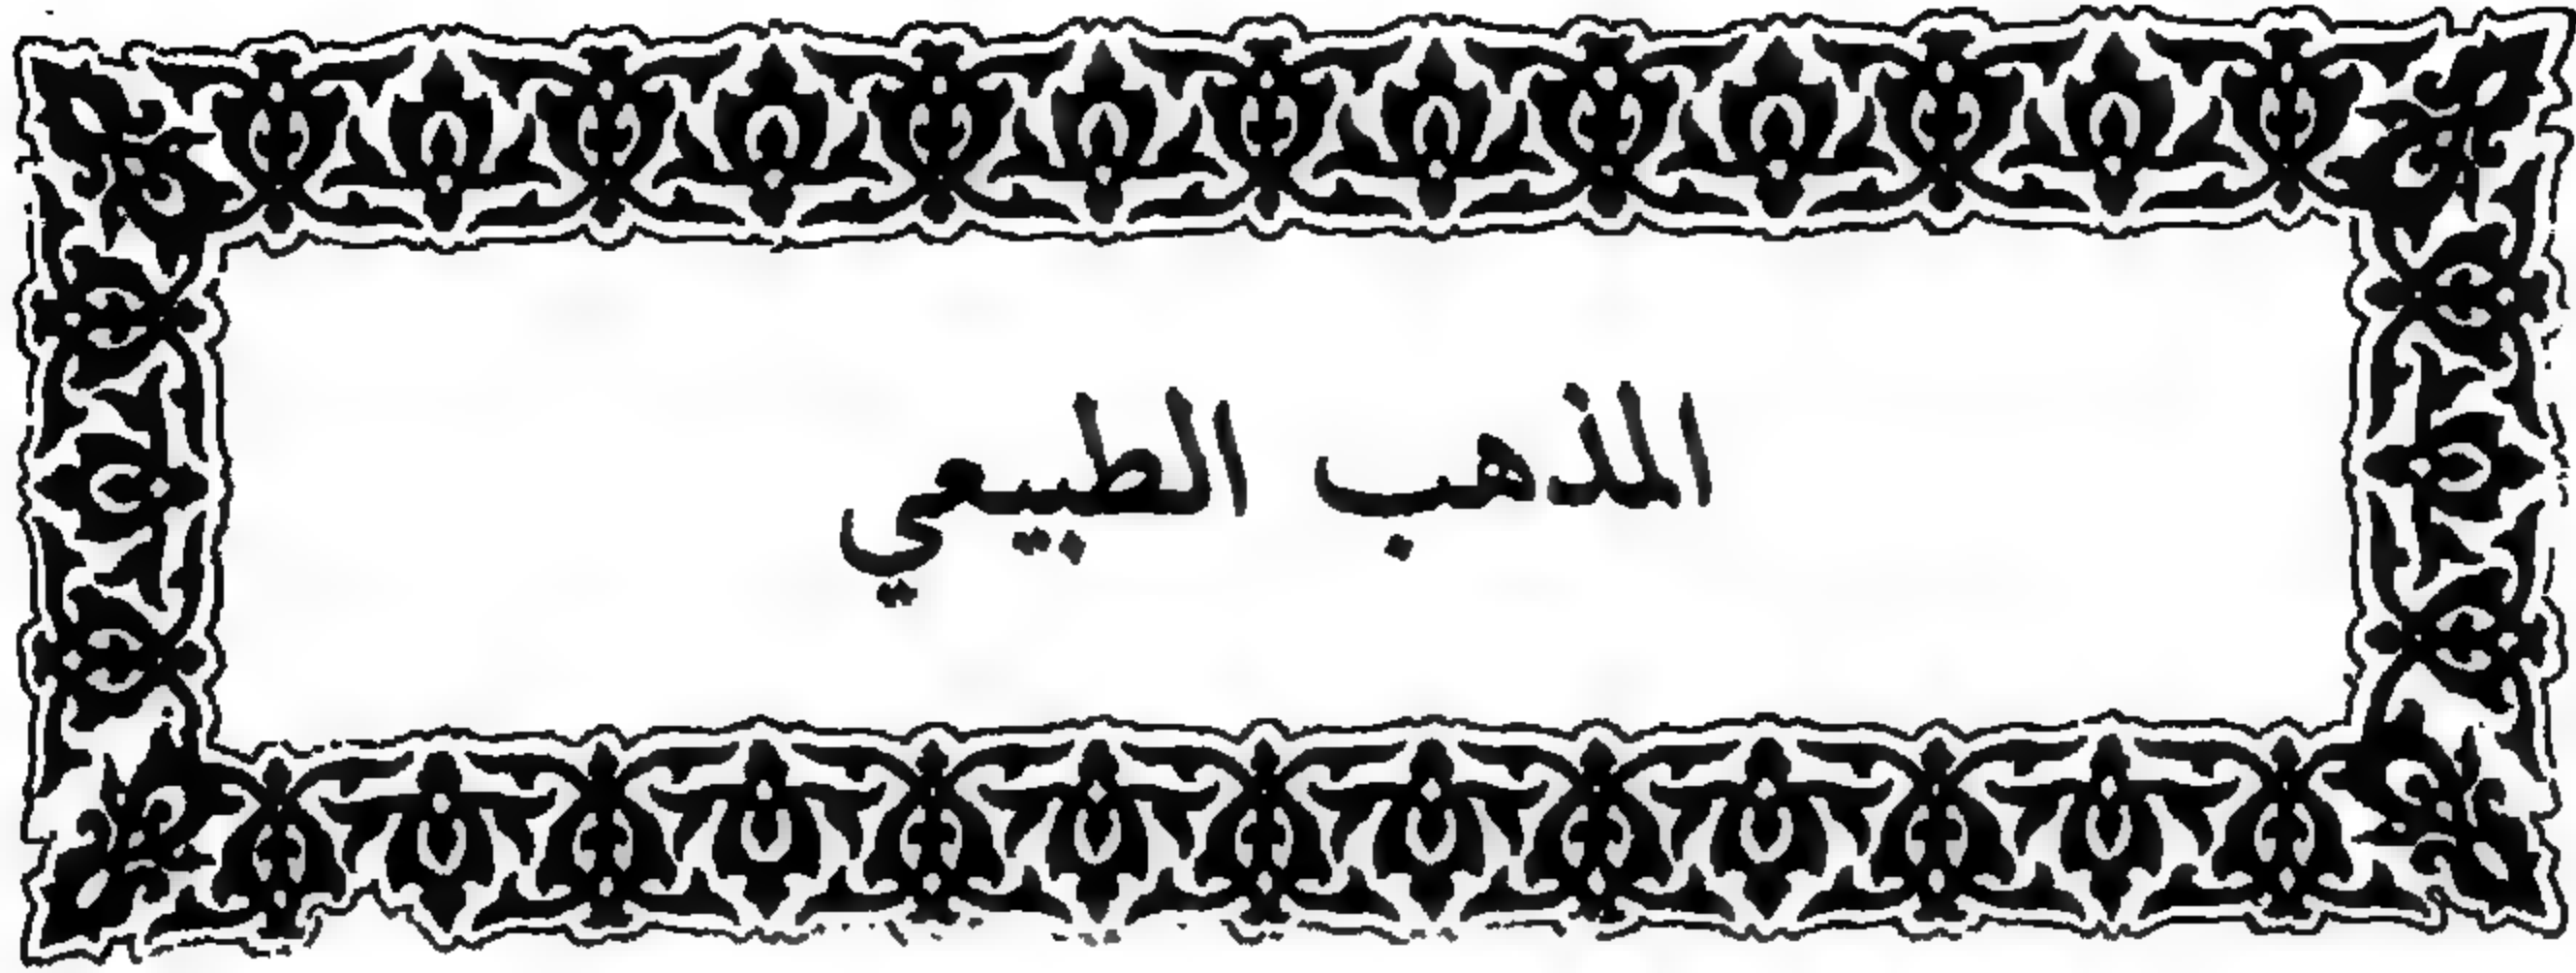 المذهب الطبيعي